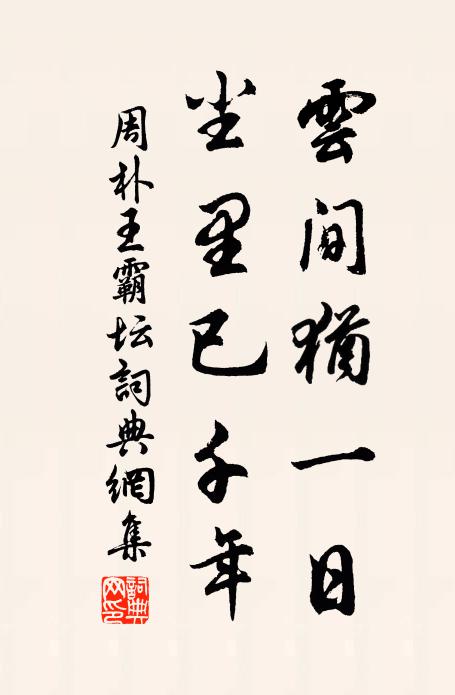 雲間猶一日
尘里已千年
周朴王霸坛詞典網集
詞典网印